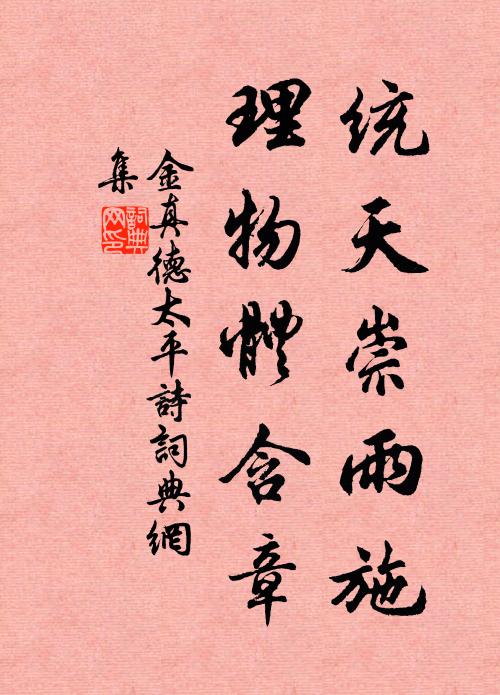 统天崇雨施
理物體含章
金真德太平詩詞典網
集
詞典
网印